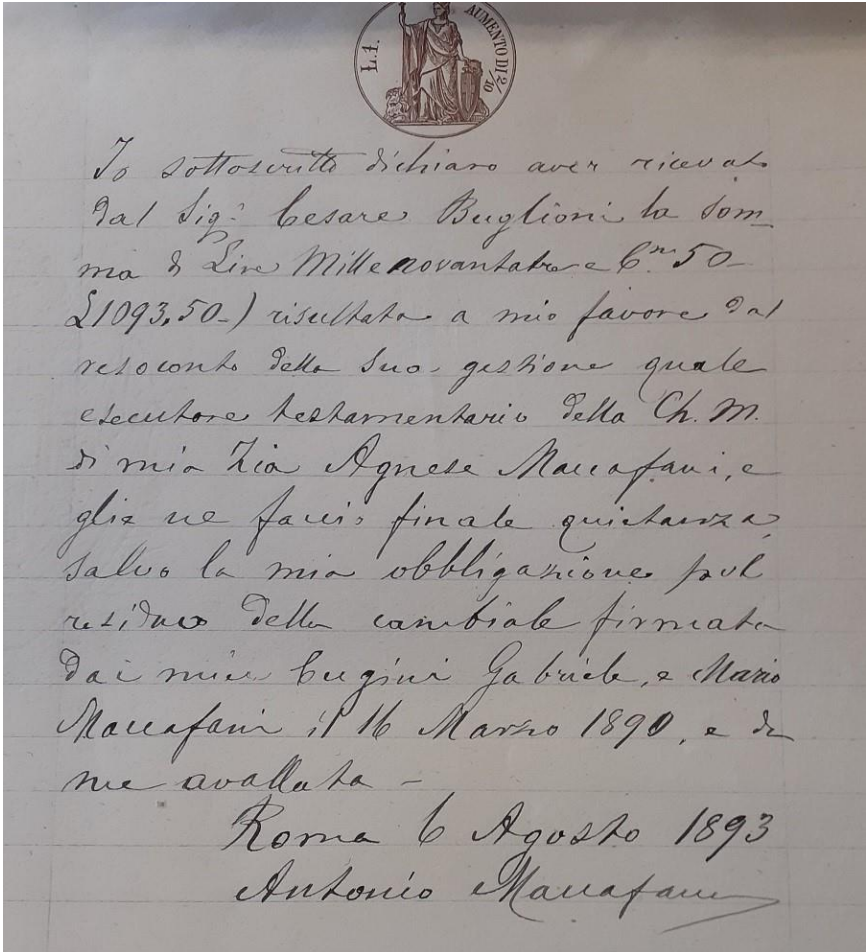 L.1. AUMENTO DI 2/10
Io sottoscritto dichiaro aver ricevuto
dal Sigr Cesare Buglioni la som-
ma di Lire Millenovantatre e C.mi 50-
£1093.50-) risultata a mio favore dal
resoconto della sua gestione quale
esecutore testamentario della Ch. M.
di mia Zia Agnese Maccafani, e
glie ne faccio finale quietanza,
salvo la mia obbligazione pel
residuo della cambiale firmata
dai miei Cugini Gabriele, e Mario
Maccafani il 16 Marzo 1890, e da
me avallata -
Roma 6 Agosto 1893
Antonio Maccafani